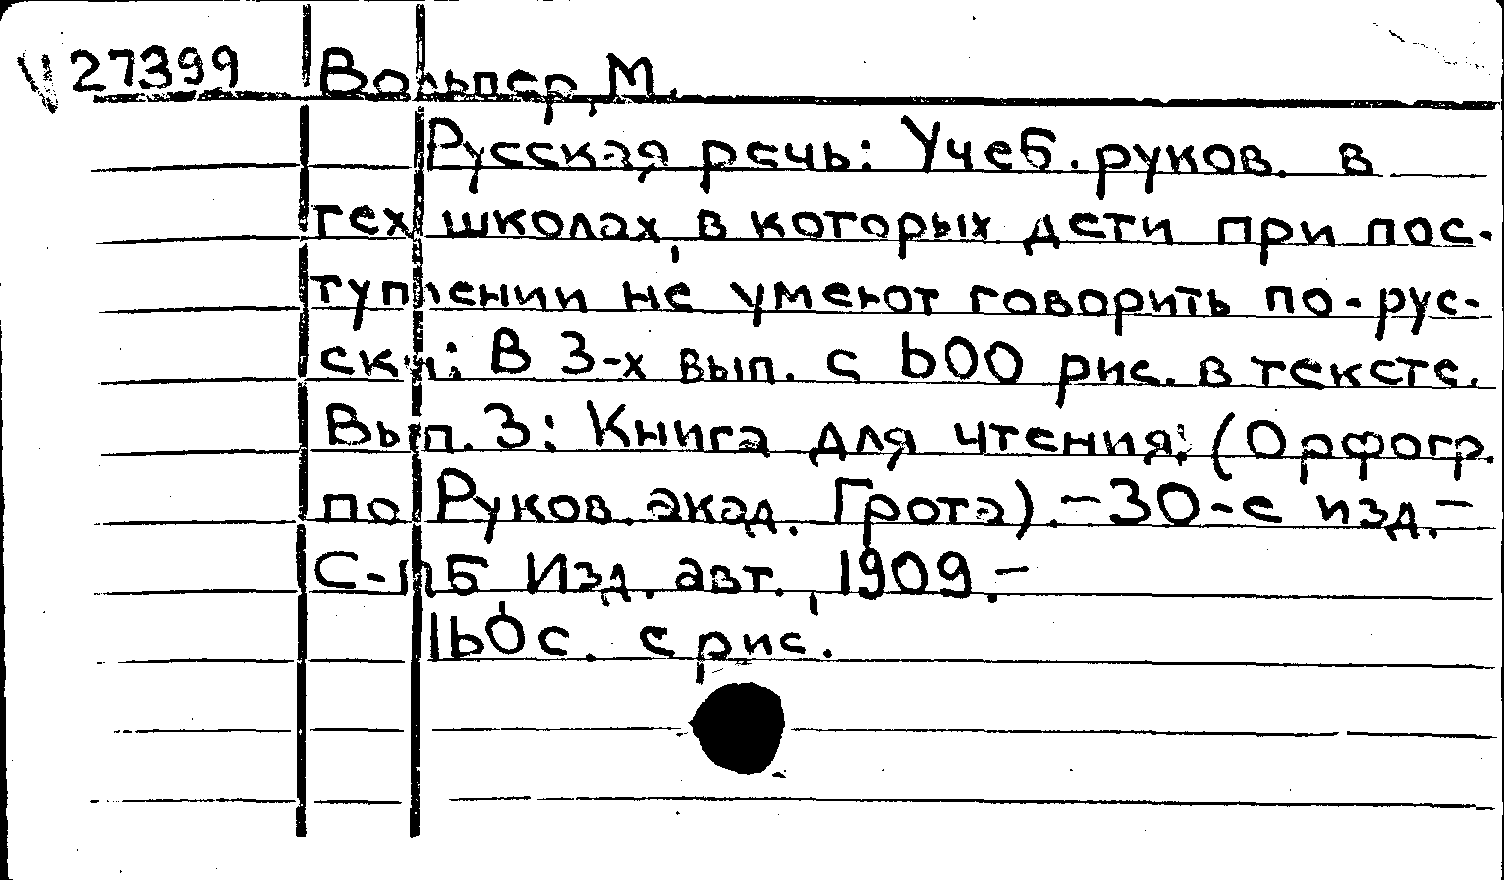 27399 Вольпер, М.
Русская речь: Учеб. руков. в
тех школах, в которых дети при пос-
туплении не умеют говорить по-рус-
ски: В 3-х вып. с 600 рис. в тексте.
Вып. 3: Книга для чтения: (Орфогр.
по Руков. акад. Грота). - 30-е изд. -
С-Пб, Изд. авт., 1909. -
160 с. с рис.